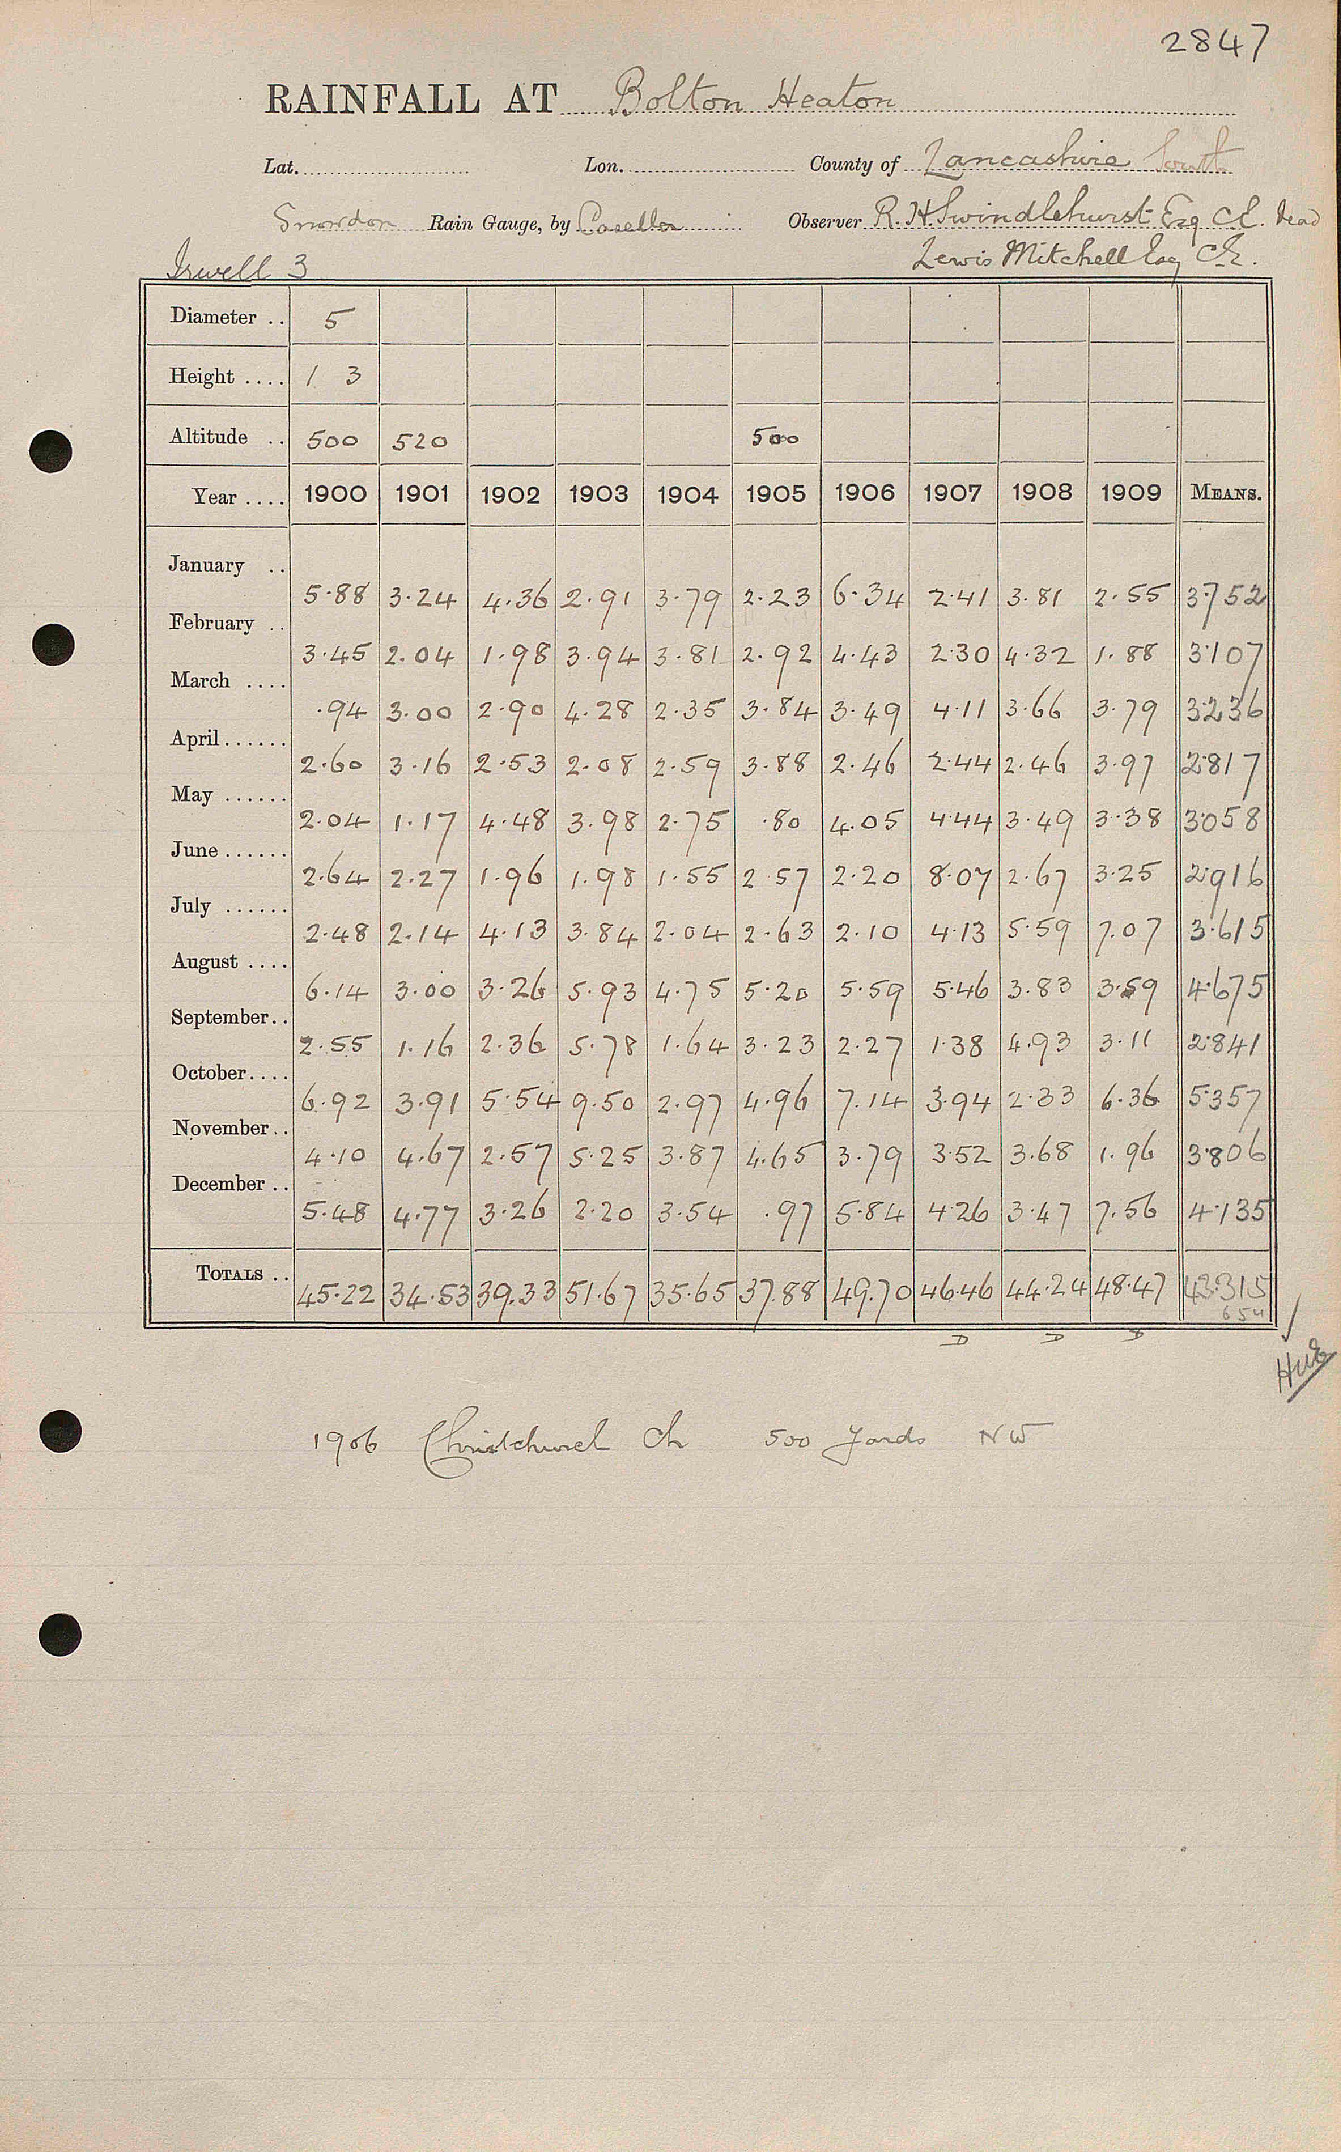 2847
RAINFALL AT Bolton Heaton
Lat. Lon. County of Lancashire South
Snowdon Rain Gauge, by Casella Observer R. H. Swindlehurst Esq C.E. dead
Irwell 3 Lewis Mitchell Esq CE.
Diameter .. 5
Height .... 1 3
Altitude .. 500 520 500
Year .... 1900 1901 1902 1903 1904 1905 1906 1907 1908 1909 MEANS.
January .. 5.88 3.24 4.36 2.91 3.79 2.23 6.34 2.41 3.81 2.55 3.752
February .. 3.45 2.04 1.98 3.94 3.81 2.92 4.43 2.30 4.32 1.88 3.107
March .... .94 3.00 2.90 4.28 2.35 3.84 3.49 4.11 3.66 3.79 3.236
April...... 2.60 3.16 2.53 2.08 2.59 3.88 2.46 2.44 2.46 3.97 2.817
May ...... 2.04 1.17 4.48 3.98 2.75 .80 4.05 4.44 3.49 3.38 3.058
June...... 2.64 2.27 1.96 1.98 1.55 2.57 2.20 8.07 2.67 3.25 2.916
July ...... 2.48 2.14 4.13 3.84 2.04 2.63 2.10 4.13 5.59 7.07 3.615
August .... 6.14 3.00 3.26 5.93 4.75 5.20 5.59 5.46 3.83 3.59 4.675
September.. 2.55 1.16 2.36 5.78 1.64 3.23 2.27 1.38 4.93 3.11 2.841
October.... 6.92 3.91 5.54 9.50 2.97 4.96 7.14 3.94 2.33 6.36 5.357
November.. 4.10 4.67 2.57 5.25 3.87 4.65 3.79 3.52 3.68 1.96 3.806
December .. 5.48 4.77 3.26 2.20 3.54 .97 5.84 4.26 3.47 7.56 4.135
TOTALS .. 45.22 34.53 39.33 51.67 35.65 37.88 49.70 46.46 44.24 48.47 43.315
D D D
1906 Christchurch Ch 500 yards NW